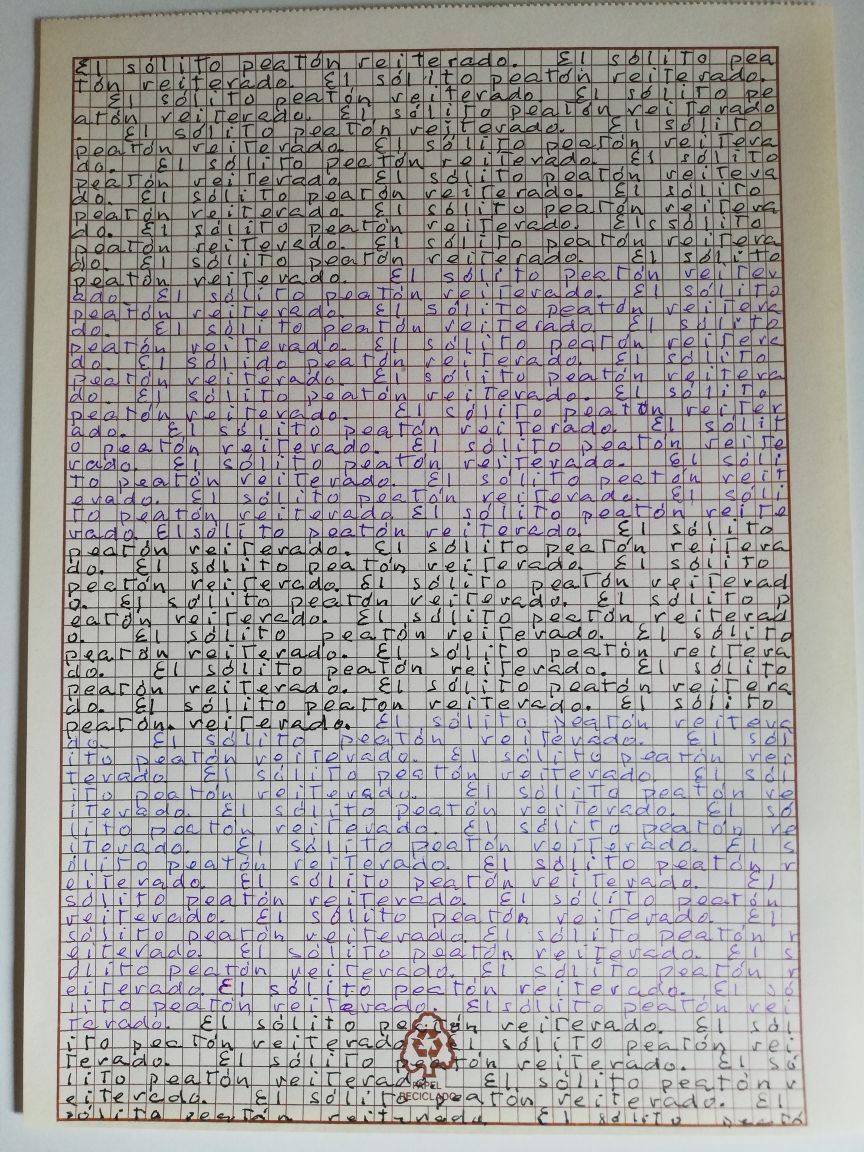 El sólito peatón reiterado. El sólito pea
tón reiterado. El sólito peatón reiterado.
El sólito peatón reiterado El sólito pe
atón reiterado. El sólito peatón reiterado
. El sólito peatón reiterado. El sólito
peatón reiterado. El sólito peatón reitera
do. El sólito peatón reiterado. El sólito
peatón reiterado. El sólito peatón reitera
do. El sólito peatón reiterado. El sólito
peatón reiterado. El sólito peatón reitera
do. El sólito peatón reiterado. El sólito
peatón reiterado. El sólito peatón reitera
do. El sólito peatón reiterado. El sólito
peatón reiterado. El sólito peatón reiter
ado. El sólito peatón reiterado. El sólito
peatón reiterado. El sólito peatón reitera
do. El sólito peatón reiterado. El sólito
peatón reiterado. El sólito peatón reitera
do. El sólido peatón reiterado. El sólito
peatón reiterado. El sólito peatón reitera
do. El sólito peatón reiterado. El sólito
peatón reiterado. El sólito peatón reiter
ado. El sólito peatón reiterado. El sólit
o peatón reiterado. El sólito peatón reite
rado. El sólito peatón reiterado. El sóli
to peatón reiterado. El sólito peatón reit
erado. El sólito peatón reiterado. El sóli
to peatón reiterado El sólito peatón reite
rado. El sólito peatón reiterado. El sólito
peatón reiterado. El sólito peatón reitera
do. El sólito peatón reiterado. El sólito
peatón reiterado. El sólito peatón reiterad
o. El sólito peatón reiterado. El sólito p
eatón reiterado. El sólito peatón reiterad
o. El sólito peatón reiterado. El sólito
peatón reiterado. El sólito peatón reitera
do. El sólito peatón reiterado. El sólito
peatón reiterado. El sólito peatón reitera
do. El sólito peatón reiterado. El sólito
peatón reiterado. El sólito peatón reitera
do. El sólito peatón reiterado. El sól
ito peatón reiterado. El sólito peatón rei
terado. El sólito peatón reiterado. El sól
ito peatón reiterado. El sólito peatón re
iterado. El sólito peatón reiterado. El só
lito peatón reiterado. El sólito peatón re
iterado. El sólito peatón reiterado. El s
ólito peatón reiterado. El sólito peatón r
eiterado. El sólito peatón reiterado. El
sólito peatón reiterado. El sólito peatón
reiterado. El sólito peatón reiterado. El
sólito peatón reiterado El sólito peatón r
eiterado. El sólito peatón reiterado. El s
ólito peatón reiterado. El sólito peatón r
eiterado. El sólito peatón reiterado. El só
lito peatón reiterado. El sólito peatón rei
terado. El sólito peatón reiterado. El sól
ito peatón reiterado El sólito peatón rei
terado. El sólito peatón reiterado. El só
lito peatón reiterado. El sólito peatón r
eiterado. El sólito peatón reiterado. El
sólito peatón reiterado. El sólito peató
PAPEL
RECICLADO